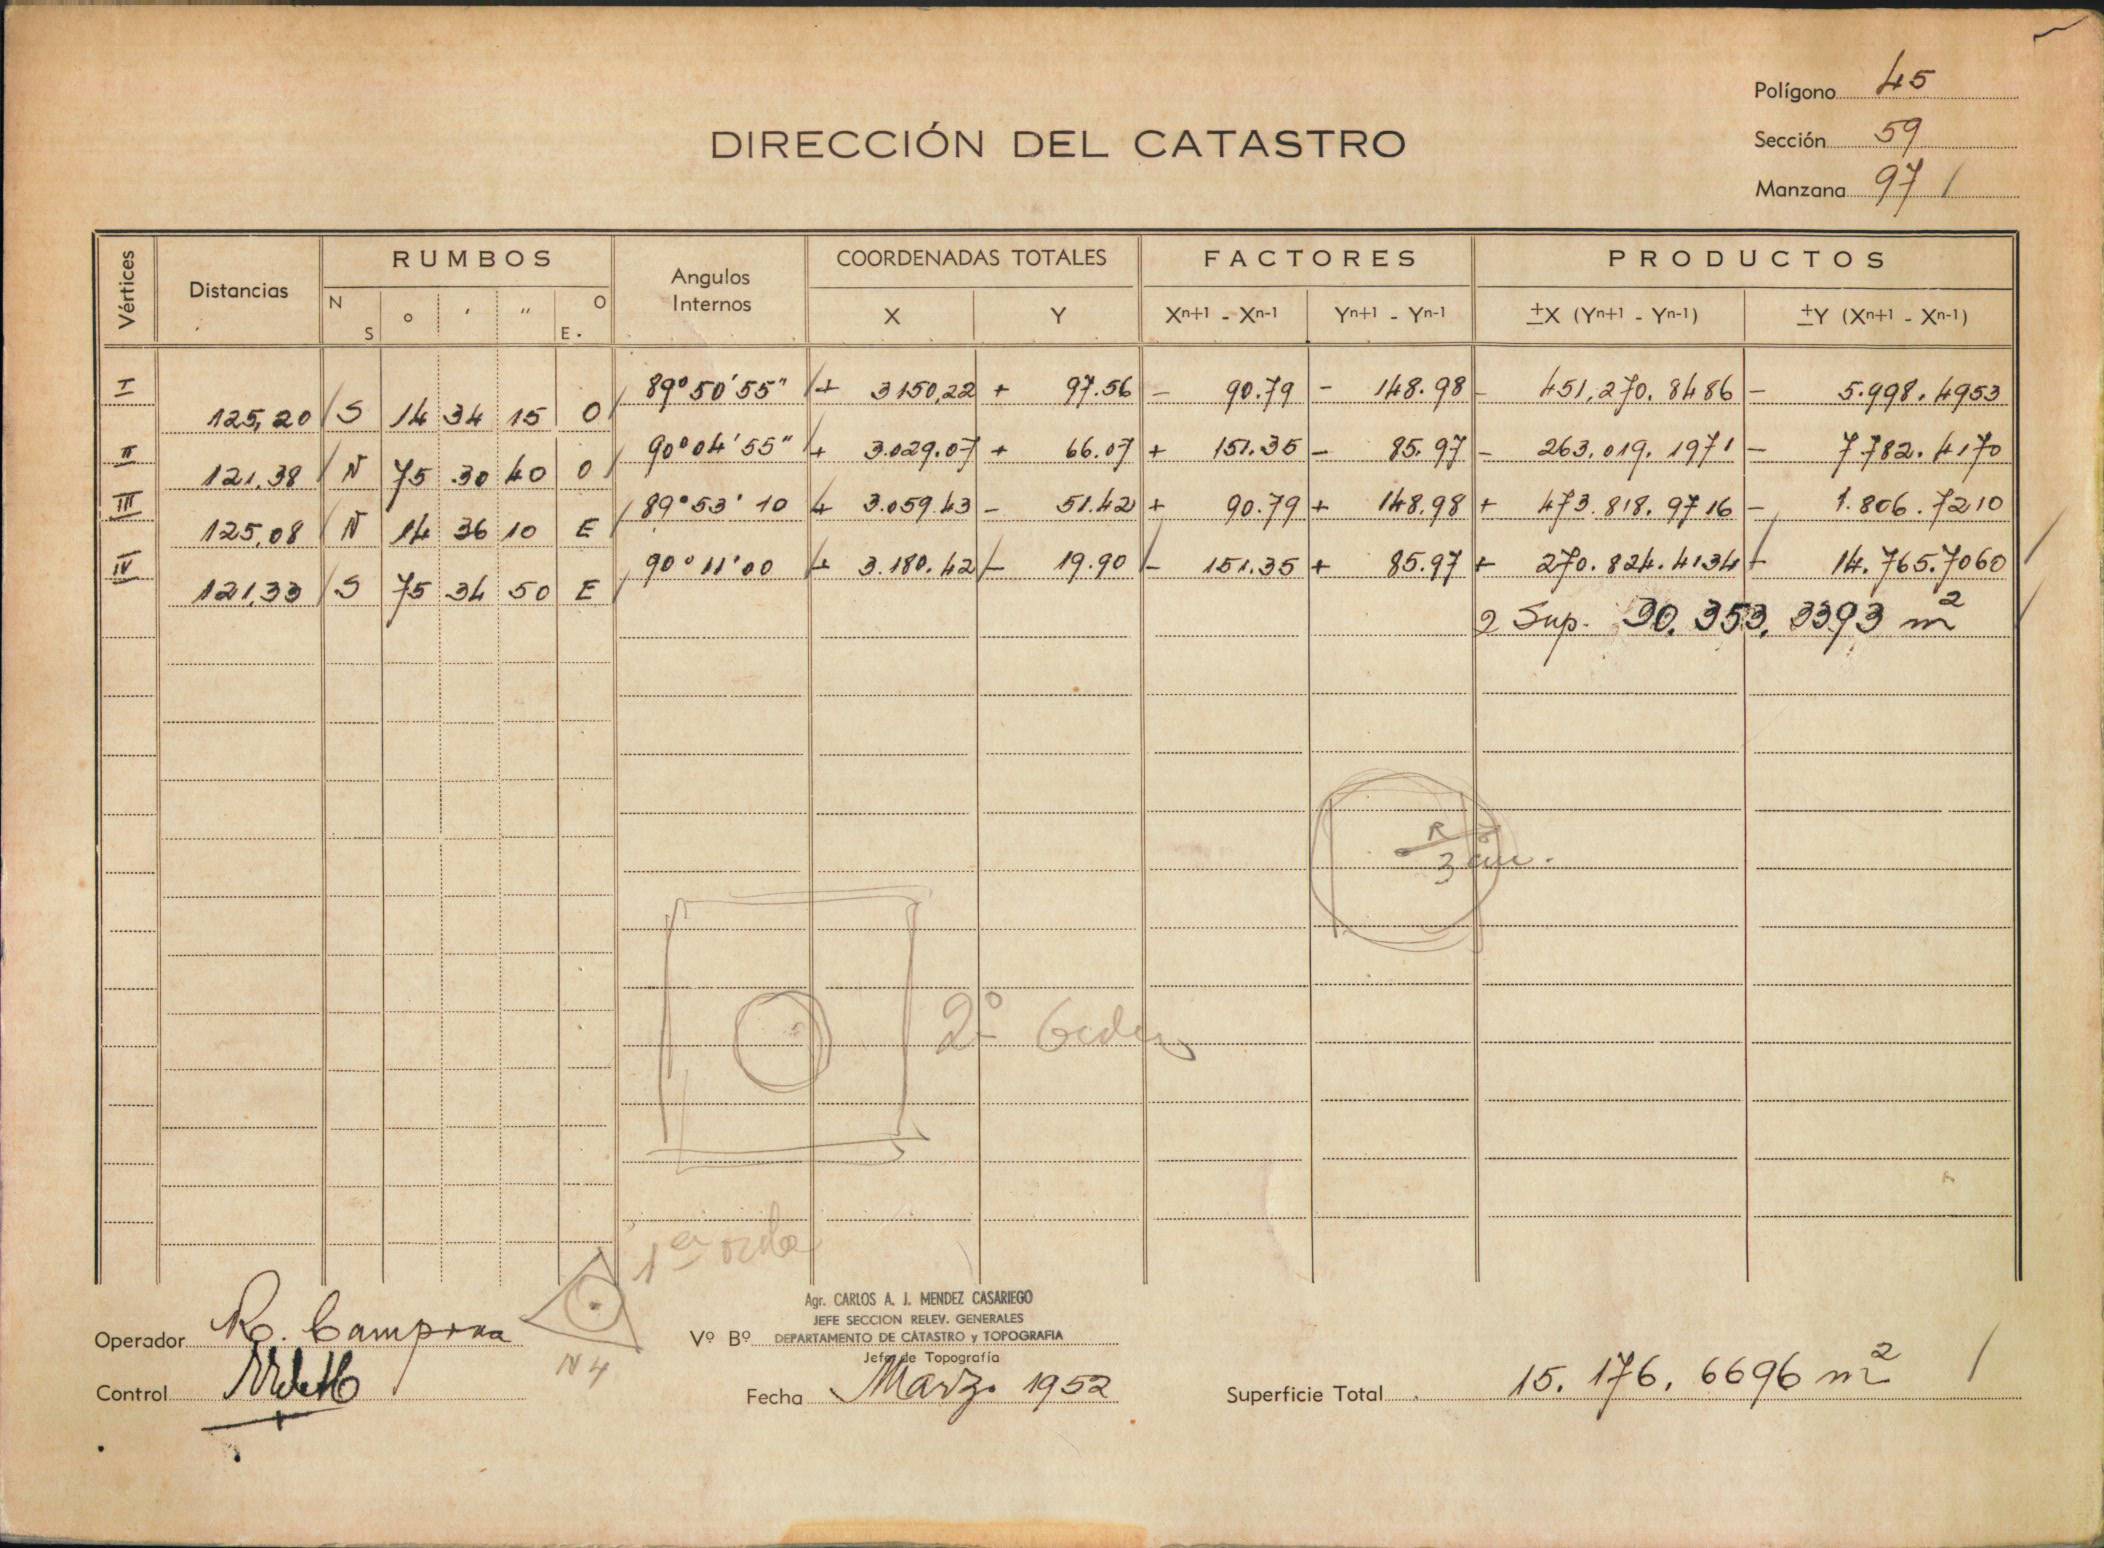 Polígono 45
DIRECCIÓN DEL CATASTRO
Sección 59
Manzana 97 /
Vértices Distancias RUMBOS Angulos Internos COORDENADAS TOTALES FACTORES PRODUCTOS
N S ° ' " O E. X Y Xn+1 - Xn-1 Yn+1 - Yn-1 ±X (Yn+1 - Yn-1) ±Y (Xn+1 - Xn-1)
I 89°50'55" + 3150,22 + 97.56 - 90.79 - 148.98 - 451,270.8486 - 5.998.4953
125,20 S 14 34 15 O
II 90°04'55" + 3.029.07 + 66.07 + 151.35 - 85.97 - 263.019.1971 - 7.782.4170
121.38 N 75 30 40 O
III 89°53'10 + 3.059.43 - 51.42 + 90.79 + 148.98 + 473.818.9716 - 1.806.7210
125,08 N 14 36 10 E
IV 90°11'00 + 3.180.42 - 19.90 - 151.35 + 85.97 + 270.824.4134 - 14.765.7060
121,33 S 75 34 50 E
2 Sup. 30.353.3393 m2
R
3 cm.
2º Orden
1er orden
N 4
Operador R. Campana
Control
Agr. CARLOS A. J. MENDEZ CASARIEGO
JEFE SECCION RELEV. GENERALES
Vº Bº DEPARTAMENTO DE CATASTRO y TOPOGRAFIA
Jefe de Topografía
Fecha Marzo 1952
Superficie Total 15.176.6696 m2 /